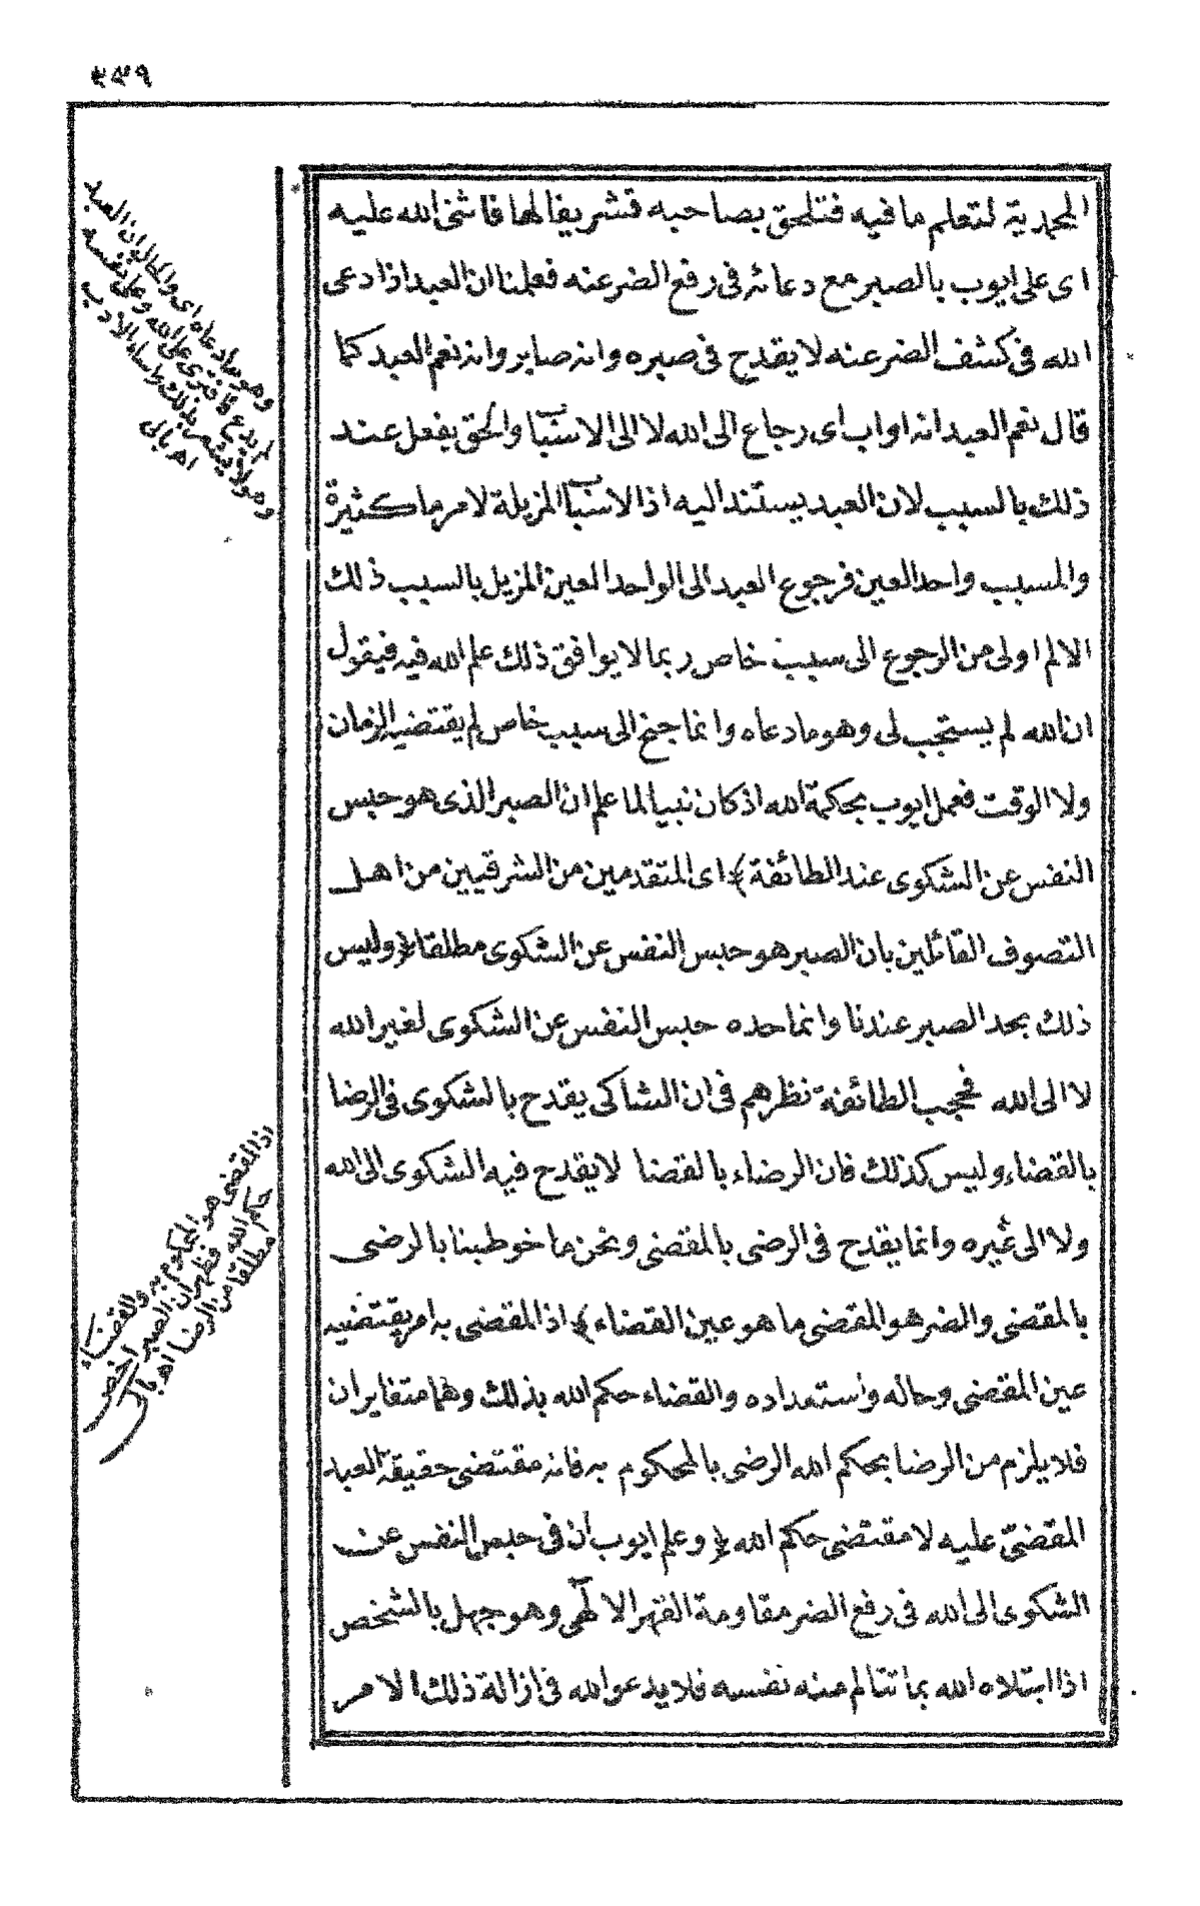 ٣٤٩
المحمدية لتعلم ما فيه فتلحق بصاحبه تشريفا لها فاثنى الله عليه
اى على ايوب بالصبر مع دعائه فى رفع الضر عنه فعلمنا ان العبد اذا دعى
الله فى كشف الضر عنه لا يقدح فى صبره وانه صابر وانه نعم العبد كما
قال نعم العبد انه اواب اى رجاع الى الله لا الى الاسباب والحق يفعل عند
ذلك بالسبب لان العبد يستند اليه اذ الاسباب المزيلة لامر ما كثيرة
والمسبب واحد العين فرجوع العبد الى الواحد العين المزيل بالسبب ذلك
الالم اولى من الرجوع الى سبب خاص ربما لا يوافق ذلك علم الله فيه فيقول
ان الله لم يستجب لى وهو ما دعاه وانما جنح الى سبب خاص لم يقتضيه الزمان
ولا الوقت فعمل ايوب بحكمة الله اذ كان نبيا لما علم ان الصبر الذى هو حبس
النفس عن الشكوى عند الطائفة ﴾ اى المتقدمين من الشرقيين من اهل
التصوف القائلين بان الصبر هو حبس النفس عن الشكوى مطلقا ﴿ وليس
ذلك بحد الصبر عندنا وانما حده حبس النفس عن الشكوى لغير الله
لا الى الله فحجب الطائفة نظرهم فى ان الشاكى يقدح بالشكوى فى الرضا
بالقضاء وليس كذلك فان الرضاء بالقضا لا يقدح فيه الشكوى الى الله
ولا الى غيره وانما يقدح فى الرضى بالمقضى ونحن ما خوطبنا بالرضى
بالمقضى والضر هو المقضى ما هو عين القضاء ﴾ اذ المقضى به امر يقتضيه
عين المقضى وحاله واستعداده والقضاء حكم الله بذلك وهما متغايران
فلا يلزم من الرضا بحكم الله الرضى بالمحكوم به فانه مقتضى حقيقة العبد
المقضى عليه لا مقتضى حكم الله ﴿ وعلم ايوب ان فى حبس النفس عن
الشكوى الى الله فى رفع الضر مقاومة القهر الالهى وهو جهل بالشخص
اذا ابتلاه الله بما تتالم منه نفسه فلا يدعو الله فى ازالة ذلك الامر
وهو ما دعاه اى والحال ان العبد
لم يدع فافترى على الله وعلى نفسه
وهو لا يشعر بذلك واساء الادب
اهـ بالى
اذ المقضى هو المحكوم به والقضاء
حكم الله فظهر ان الصبر اخص
مطلقا من الرضا اهـ بالى